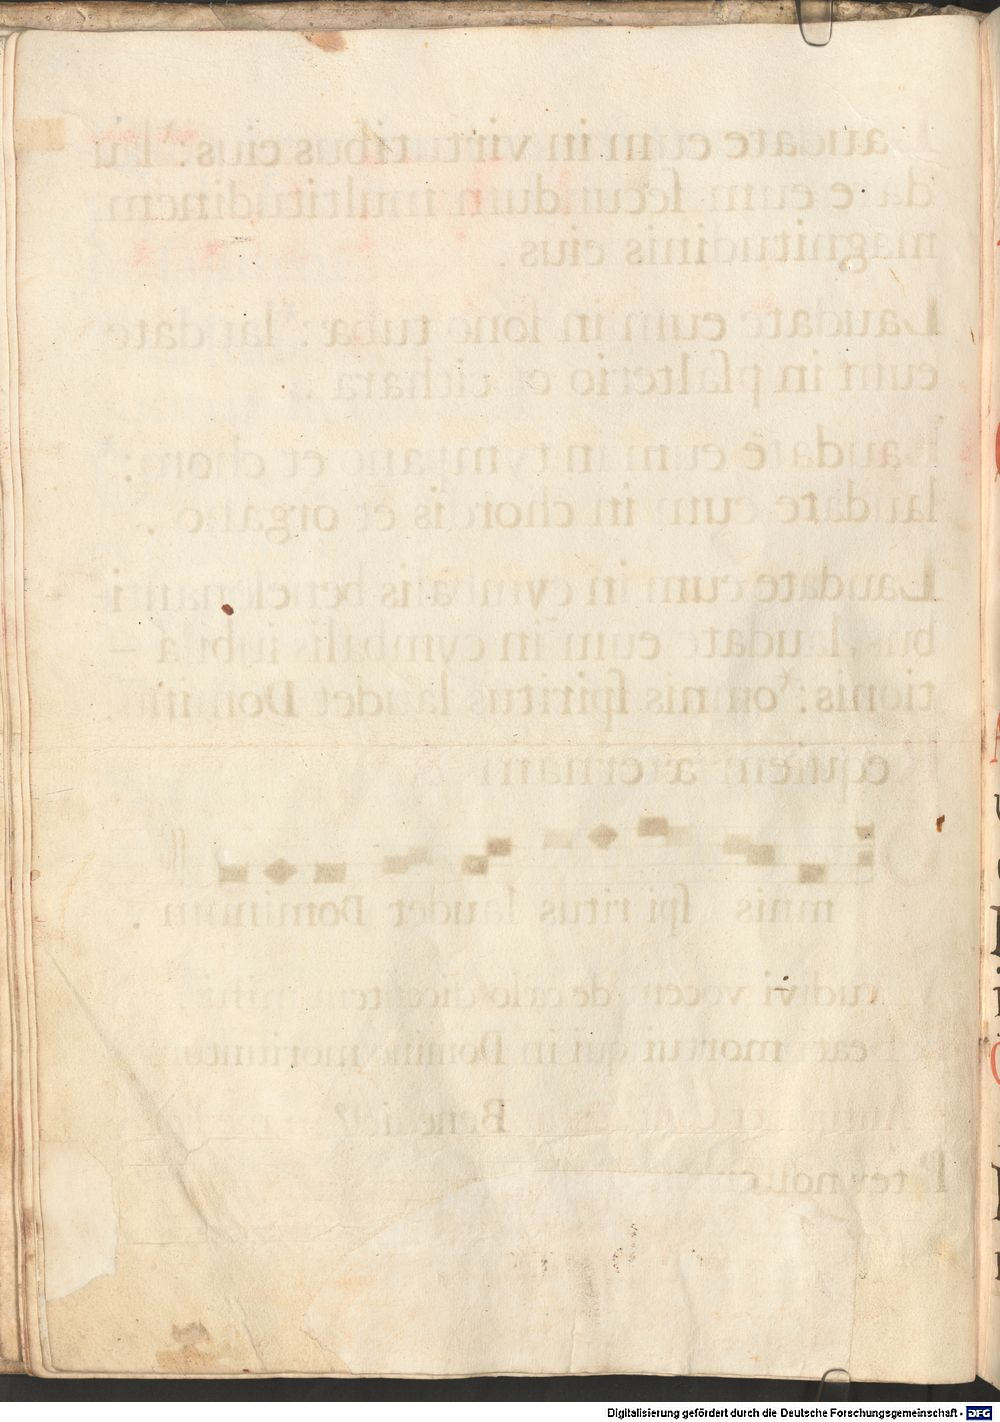 Laudate eum in virtutibus eius: * lau
date eum secundum multitudinem
magnitudinis eius.
Laudate eum in sono tubæ: * laudate
eum in psalterio et cithara.
Laudate eum in tympano et choro: *
laudate eum in chordis et organo.
Laudate eum in cymbalis benesonanti-
bus, laudate eum in cymbalis iubila-
tionis: * omnis spiritus laudet Dominū.
Requiem æternam &
Omnis spiritus laudet Dominum.
Audivi vocem de cælo dicentem mihi.
Beati mortui qui in Domino moriuntur.
Bene
Pater noster
Digitalisierung gefördert durch die Deutsche Forschungsgemeinschaft - DFG